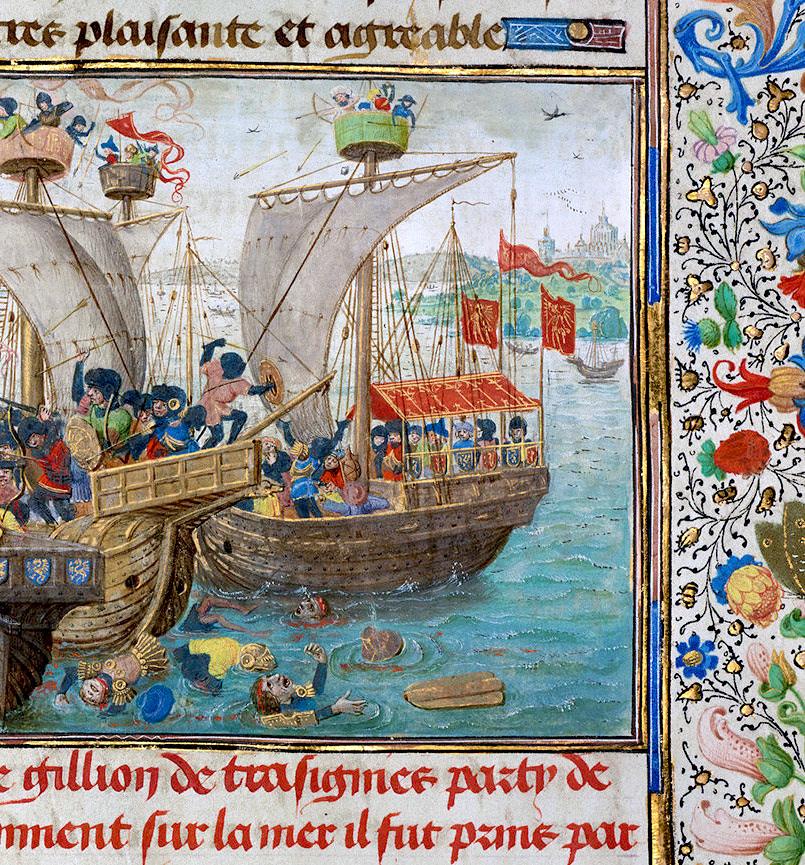 tres plaisante et agreable
e gillion de trasignies party de
mment sur la mer il fut prins par